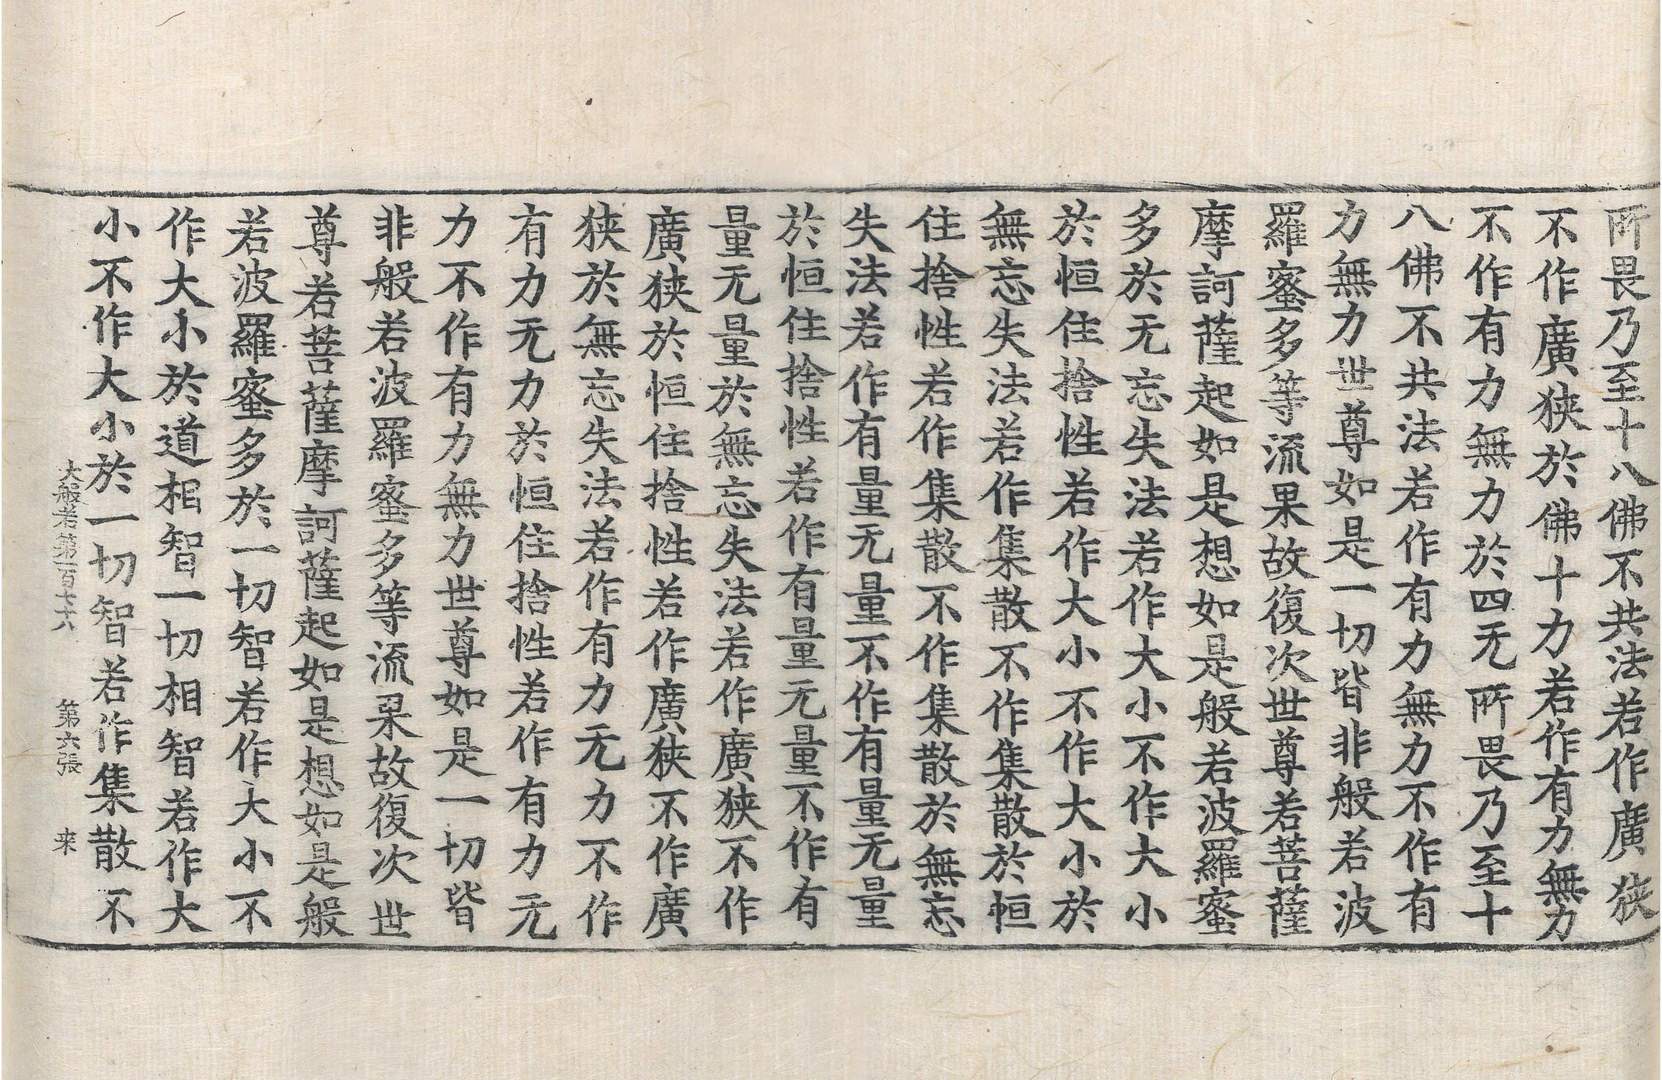 所畏乃至十八佛不共法若作廣狹
不作廣狹於佛十力若作有力無力
不作有力無力於四无所畏乃至十
八佛不共法若作有力無力不作有
力無力世尊如是一切皆非般若波
羅蜜多等流果故復次世尊若菩薩
摩訶薩起如是想如是般若波羅蜜
多於无忘失法若作大小不作大小
於恒住捨性若作大小不作大小於
無忘失法若作集散不作集散於恒
住捨性若作集散不作集散於無忘
失法若作有量无量不作有量无量
於恒住捨性若作有量无量不作有
量无量於無忘失法若作廣狹不作
廣狹於恒住捨性若作廣狹不作廣
狹於無忘失法若作有力无力不作
有力无力於恒住捨性若作有力无
力不作有力無力世尊如是一切皆
非般若波羅蜜多等流果故復次世
尊若菩薩摩訶薩起如是想如是般
若波羅蜜多於一切智若作大小不
作大小於道相智一切相智若作大
小不作大小於一切智若作集散不
大般若第一百七十六 第六張 来